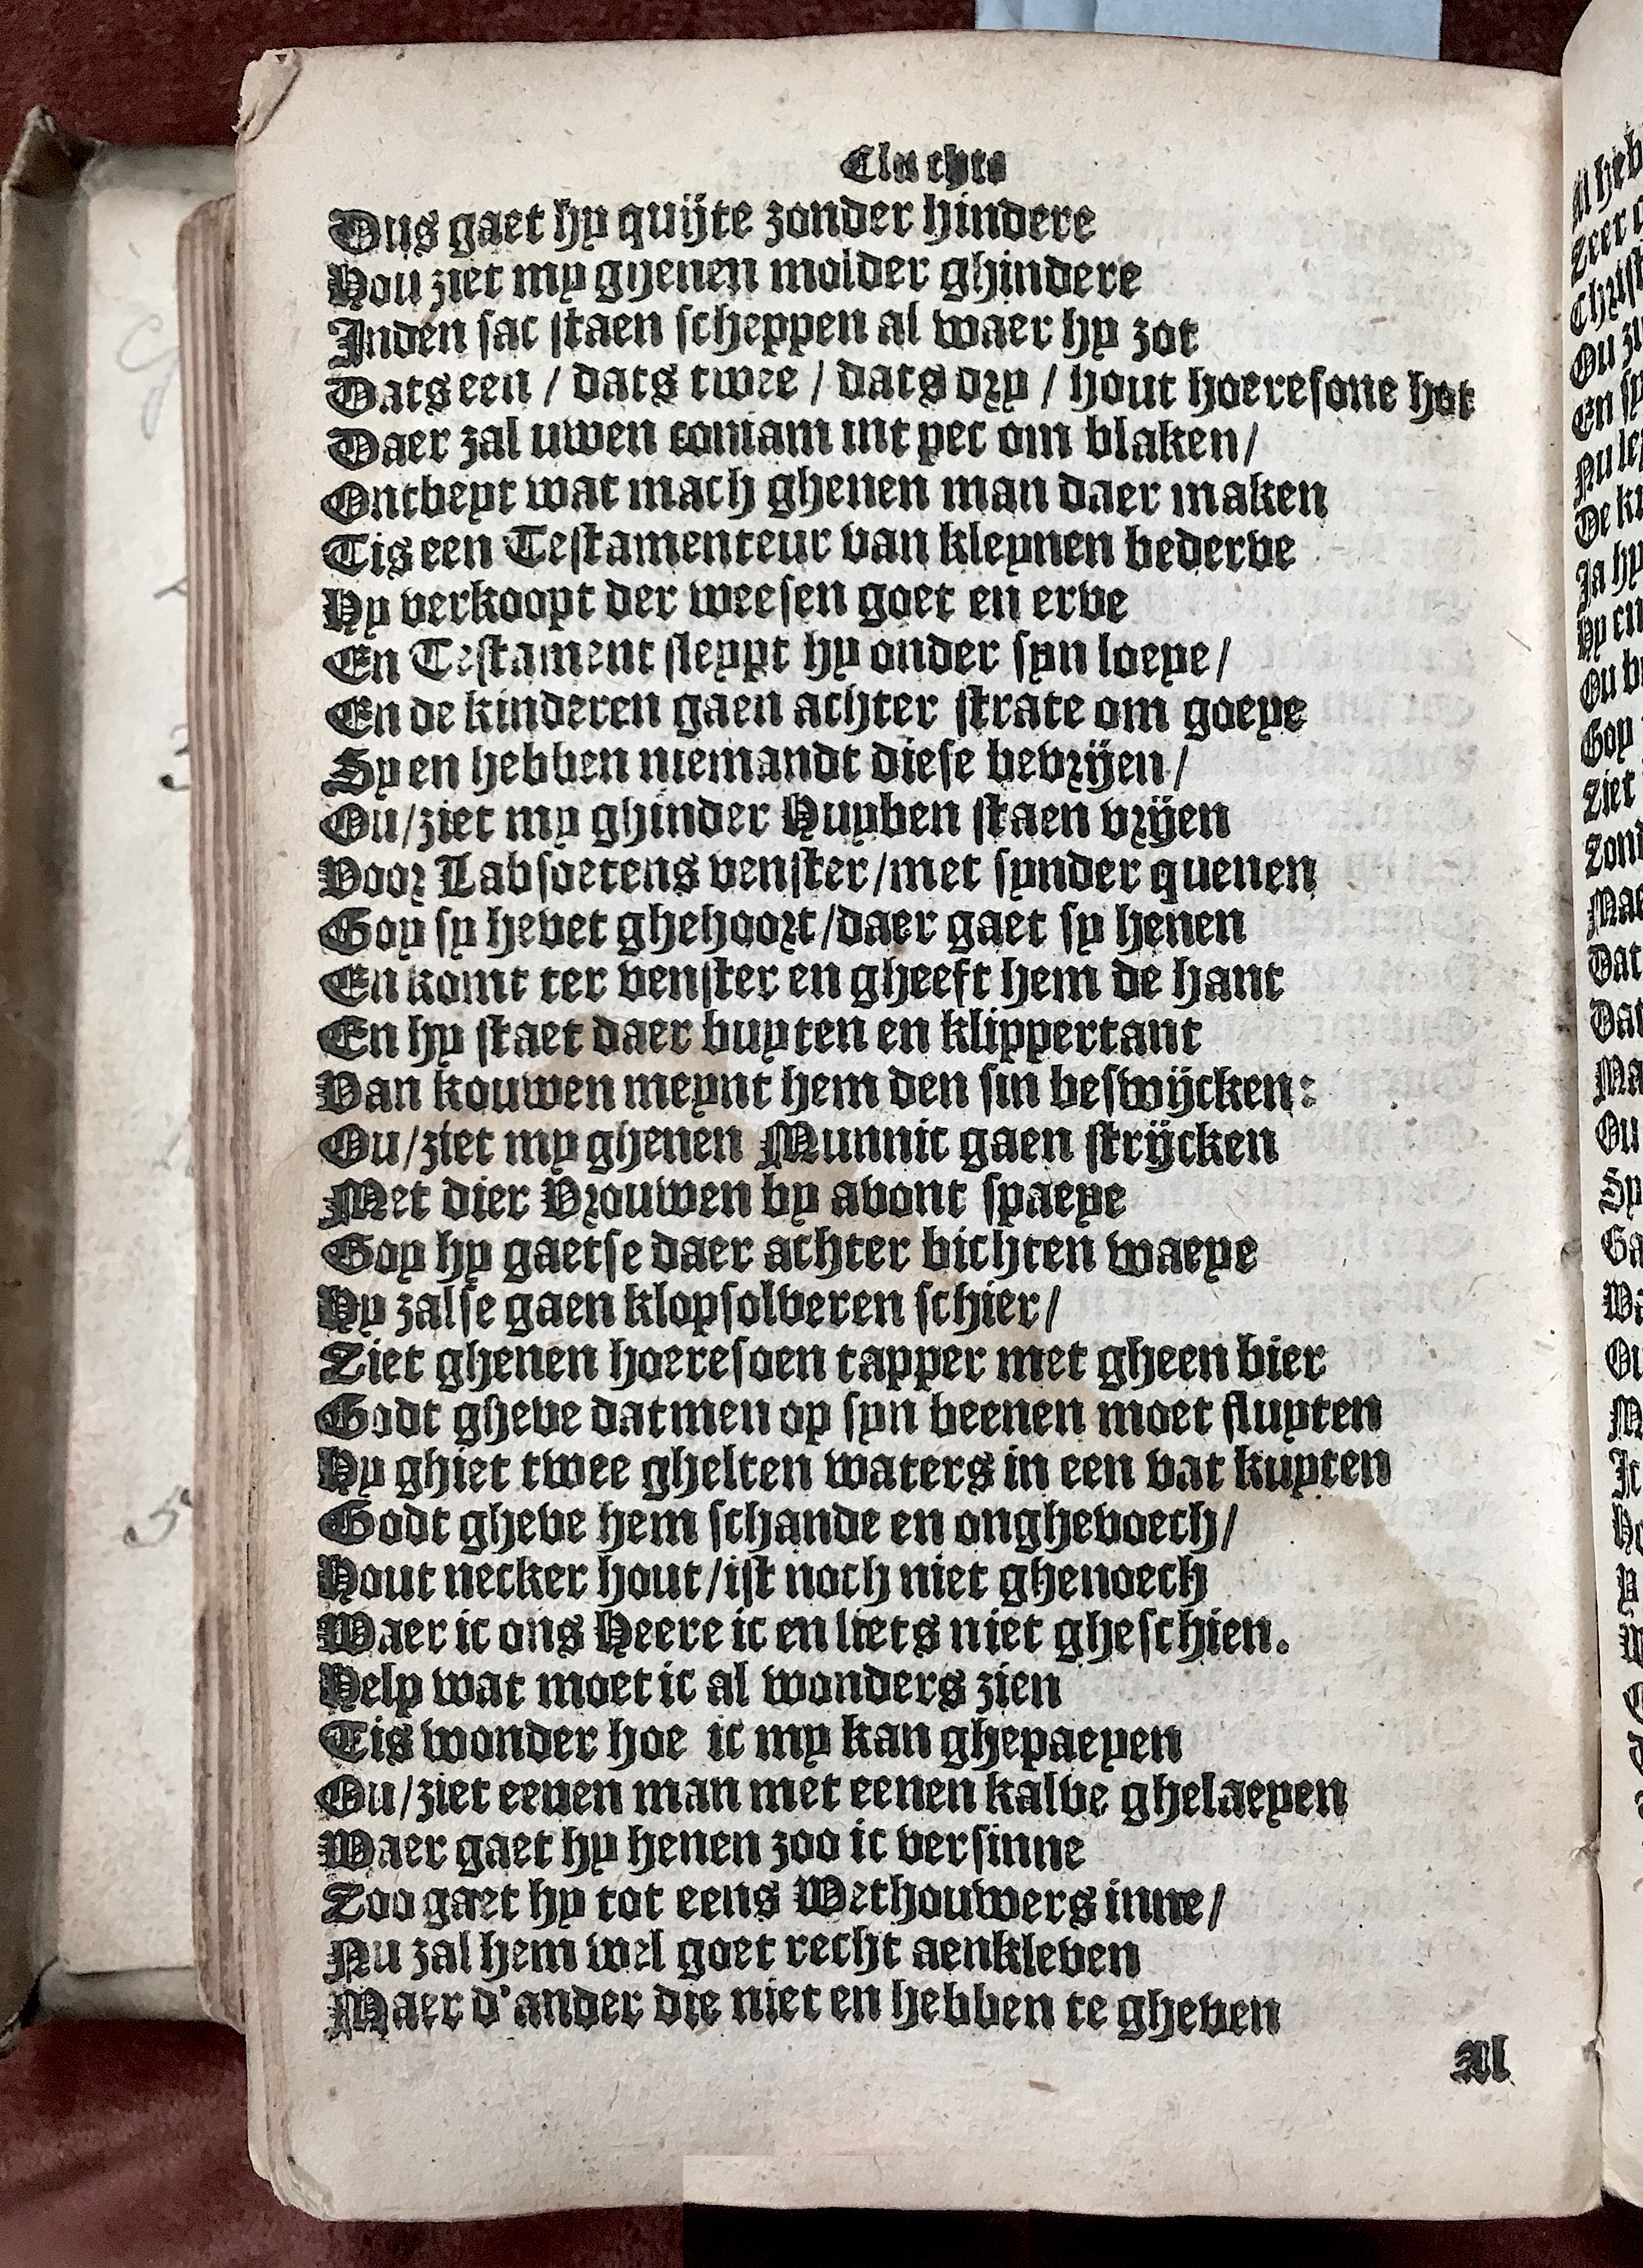 Cluchte
Dus gaet hy quijte zonder hindere
Hou ziet my ghenen molder ghindere
Inden sac staen scheppen al waer hy zot
Dats een / dats twee / dats dry / hout hoeresone hot
Daer zal uwen coniam int pec om blaken /
Ontbeyt wat mach ghenen man daer maken
Tis een Testamenteur van kleynen bederve
Hy verkoopt der weesen goet en erve
En Testament sleypt hy onder syn loeye /
En de kinderen gaen achter strate om goeye
Sy en hebben niemandt diese bevrijen /
Ou / ziet my ghinder Huyben staen vrijen
Voor Labsoetens venster / met synder quenen
Goy sy hevet ghehoort / daer gaet sy henen
En komt ter venster en gheeft hem de hant
En hy staet daer buyten en klippertant
Van kouwen meynt hem den sin beswijcken:
Ou / ziet my ghenen Munnic gaen strijcken
Met dier Vrouwen by avont spaeye
Goy hy gaetse daer achter bichten waeye
Hy zalse gaen klopsolveren schier /
Ziet ghenen hoeresoen tapper met gheen bier
Godt gheve datmen op syn beenen moet fluyten
Hy ghiet twee ghelten waters in een vat kuyten
Godt gheve hem schande en onghevoech /
Hout necker hout / ist noch niet ghenoech
Waer ic ons Heere ic en liets niet gheschien.
Help wat moet ic al wonders zien
Tis wonder hoe ic my kan ghepaeyen
Ou / ziet eenen man met eenen kalve ghelaeyen
Waer gaet hy henen zoo ic versinne
Zoo gaet hy tot eens Wethouwers inne /
Nu zal hem wel goet recht aenkleven
Maer d'ander die niet en hebben te gheven
Al